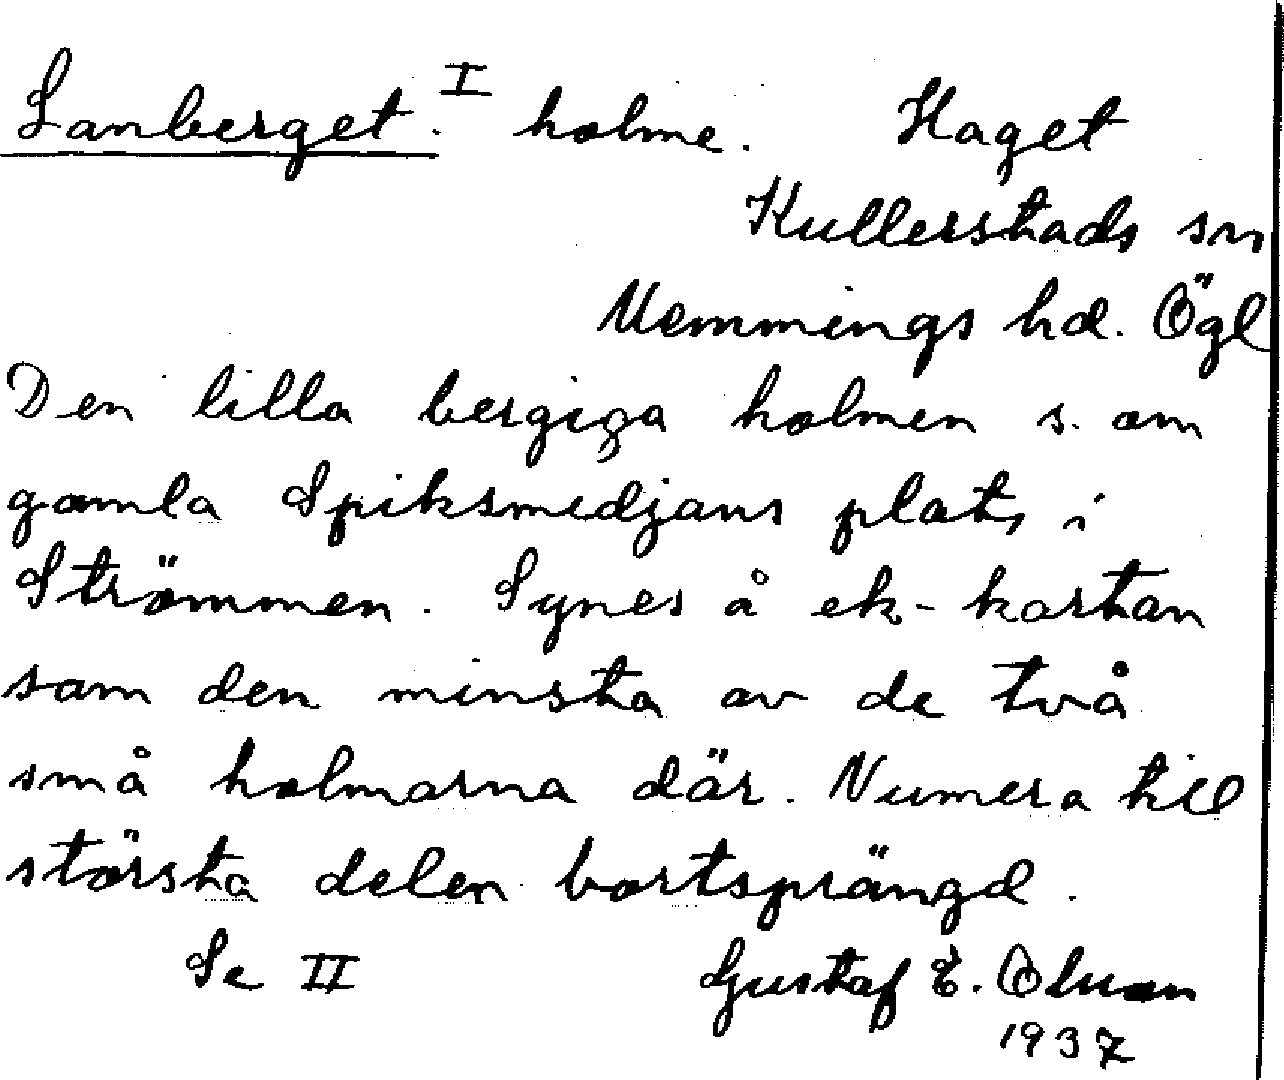 Lanberget. I holme. Haget
Kullerstads sn
Memmings hd. Ögl
Den lilla bergiga holmen s. om
gamla Spiksmedjans plats i
Strömmen. Synes å ek-kartan
som den minsta av de två
små holmarna där. Numera till
största delen bortsprängd.
Se II Gustaf E.
1937